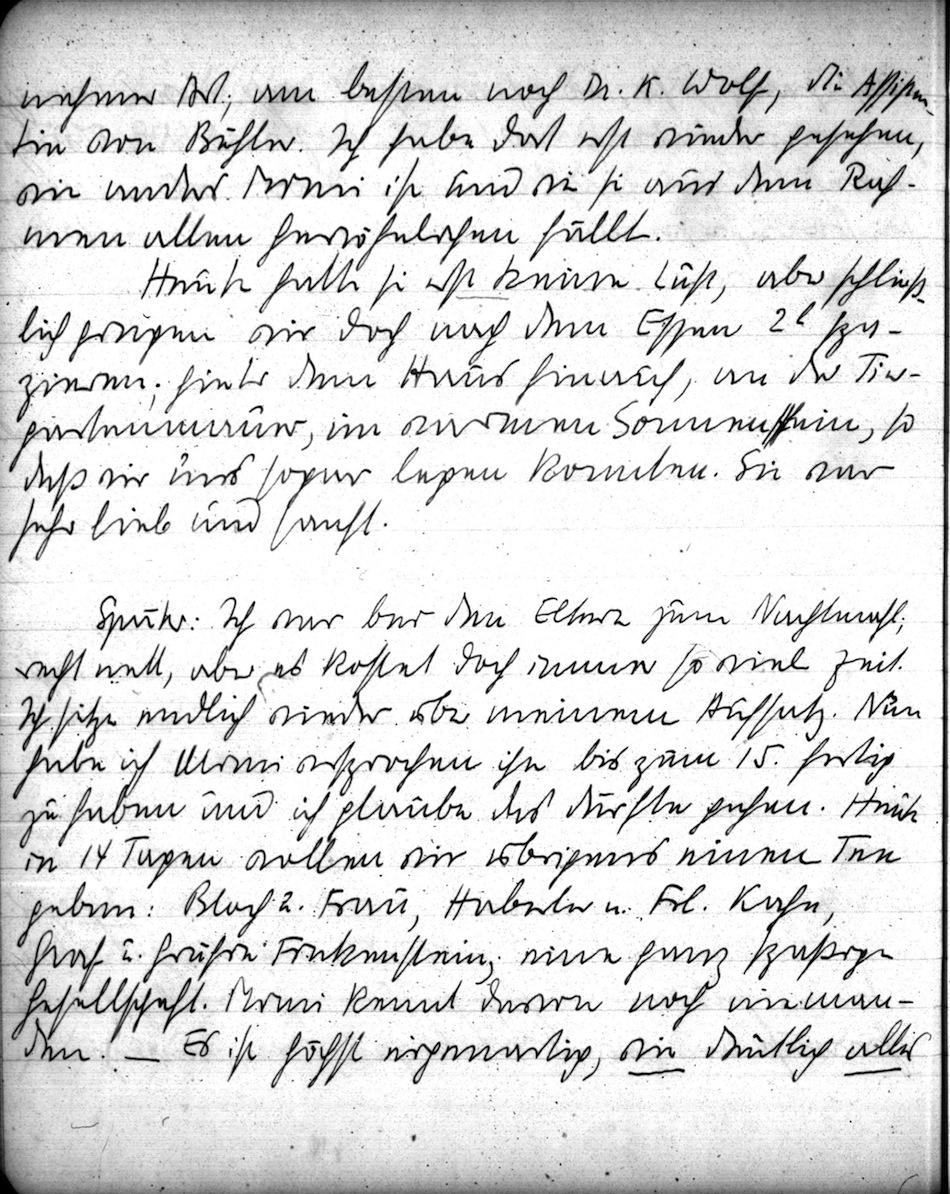 nehmer Art; am besten noch Dr. K. Wolf, die Assisten-
tin von Bühler. Ich habe dort erst wieder gesehen,
wie anders Mome ist und wie sie aus dem Rah-
men allen Gewöhnlichen fällt.
Heute hatte sie erst keine Lust, aber schließ-
lich gingen wir doch nach dem Essen 2h spa-
zieren; hinter dem Haus hinauf, an der Tier-
gartenmauer, im warmen Sonnenschein, so
daß wir uns sogar legen konnten. Sie war
sehr lieb und sanft.
Später: Ich war bei den Eltern zum Nachtmahl;
recht nett, aber es kostet doch immer so viel Zeit.
Ich sitze endlich wieder über meinem Aufsatz. Nun
habe ich Mome versprochen ihn bis zum 15. fertig
zu haben und ich glaube das dürfte gehen. Heute
in 14 Tagen wollen wir übrigens einen Tee
geben: Bloch u. Frau, Haberler u. Frl. Kahn,
Graf u. Gräfin Frankenstein, eine ganz spaßige
Gesellschaft. Mome kennt davon noch nieman-
den. — Es ist höchst eigenartig, wie deutlich alles